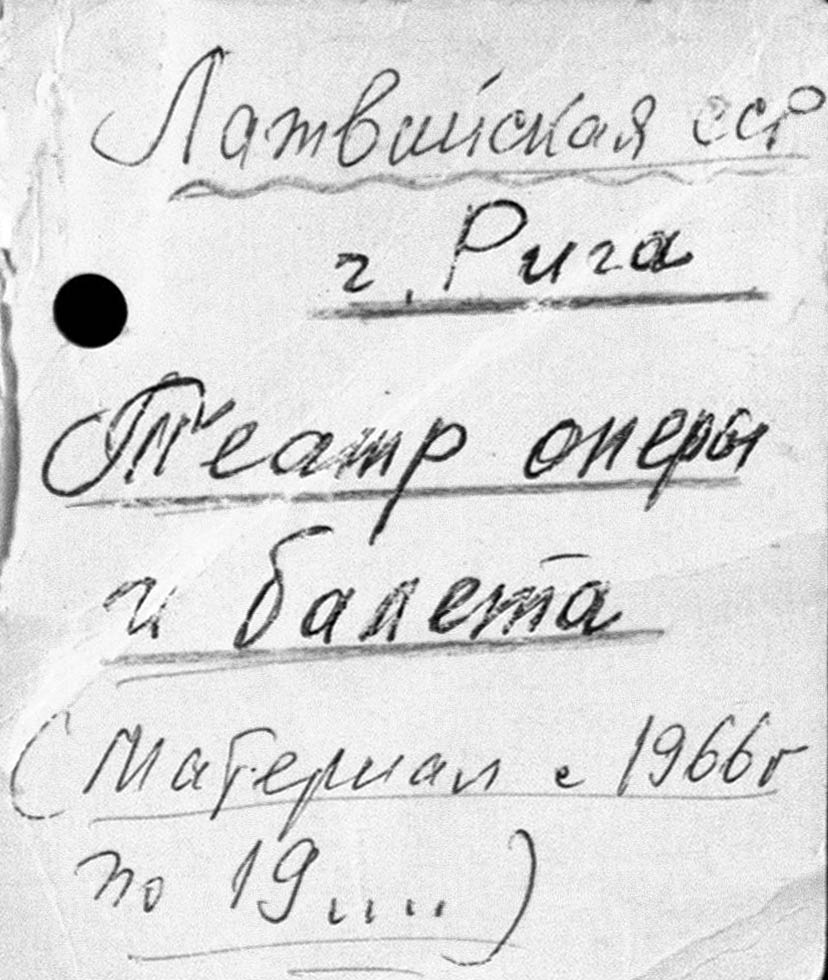 Латвийская ССР
г. Рига
Театр оперы
и балета
(Материал с 1966г
по 19....)